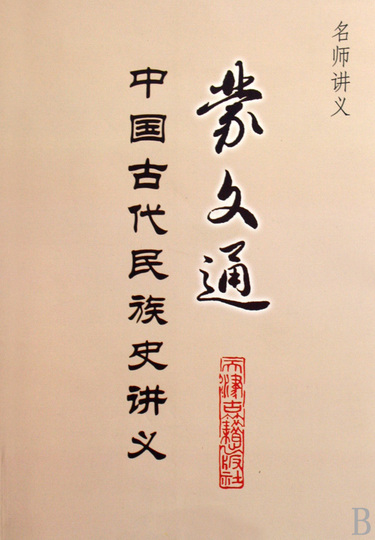 名师讲义
蒙文通
中国古代民族史讲义
天津古籍出版社
B